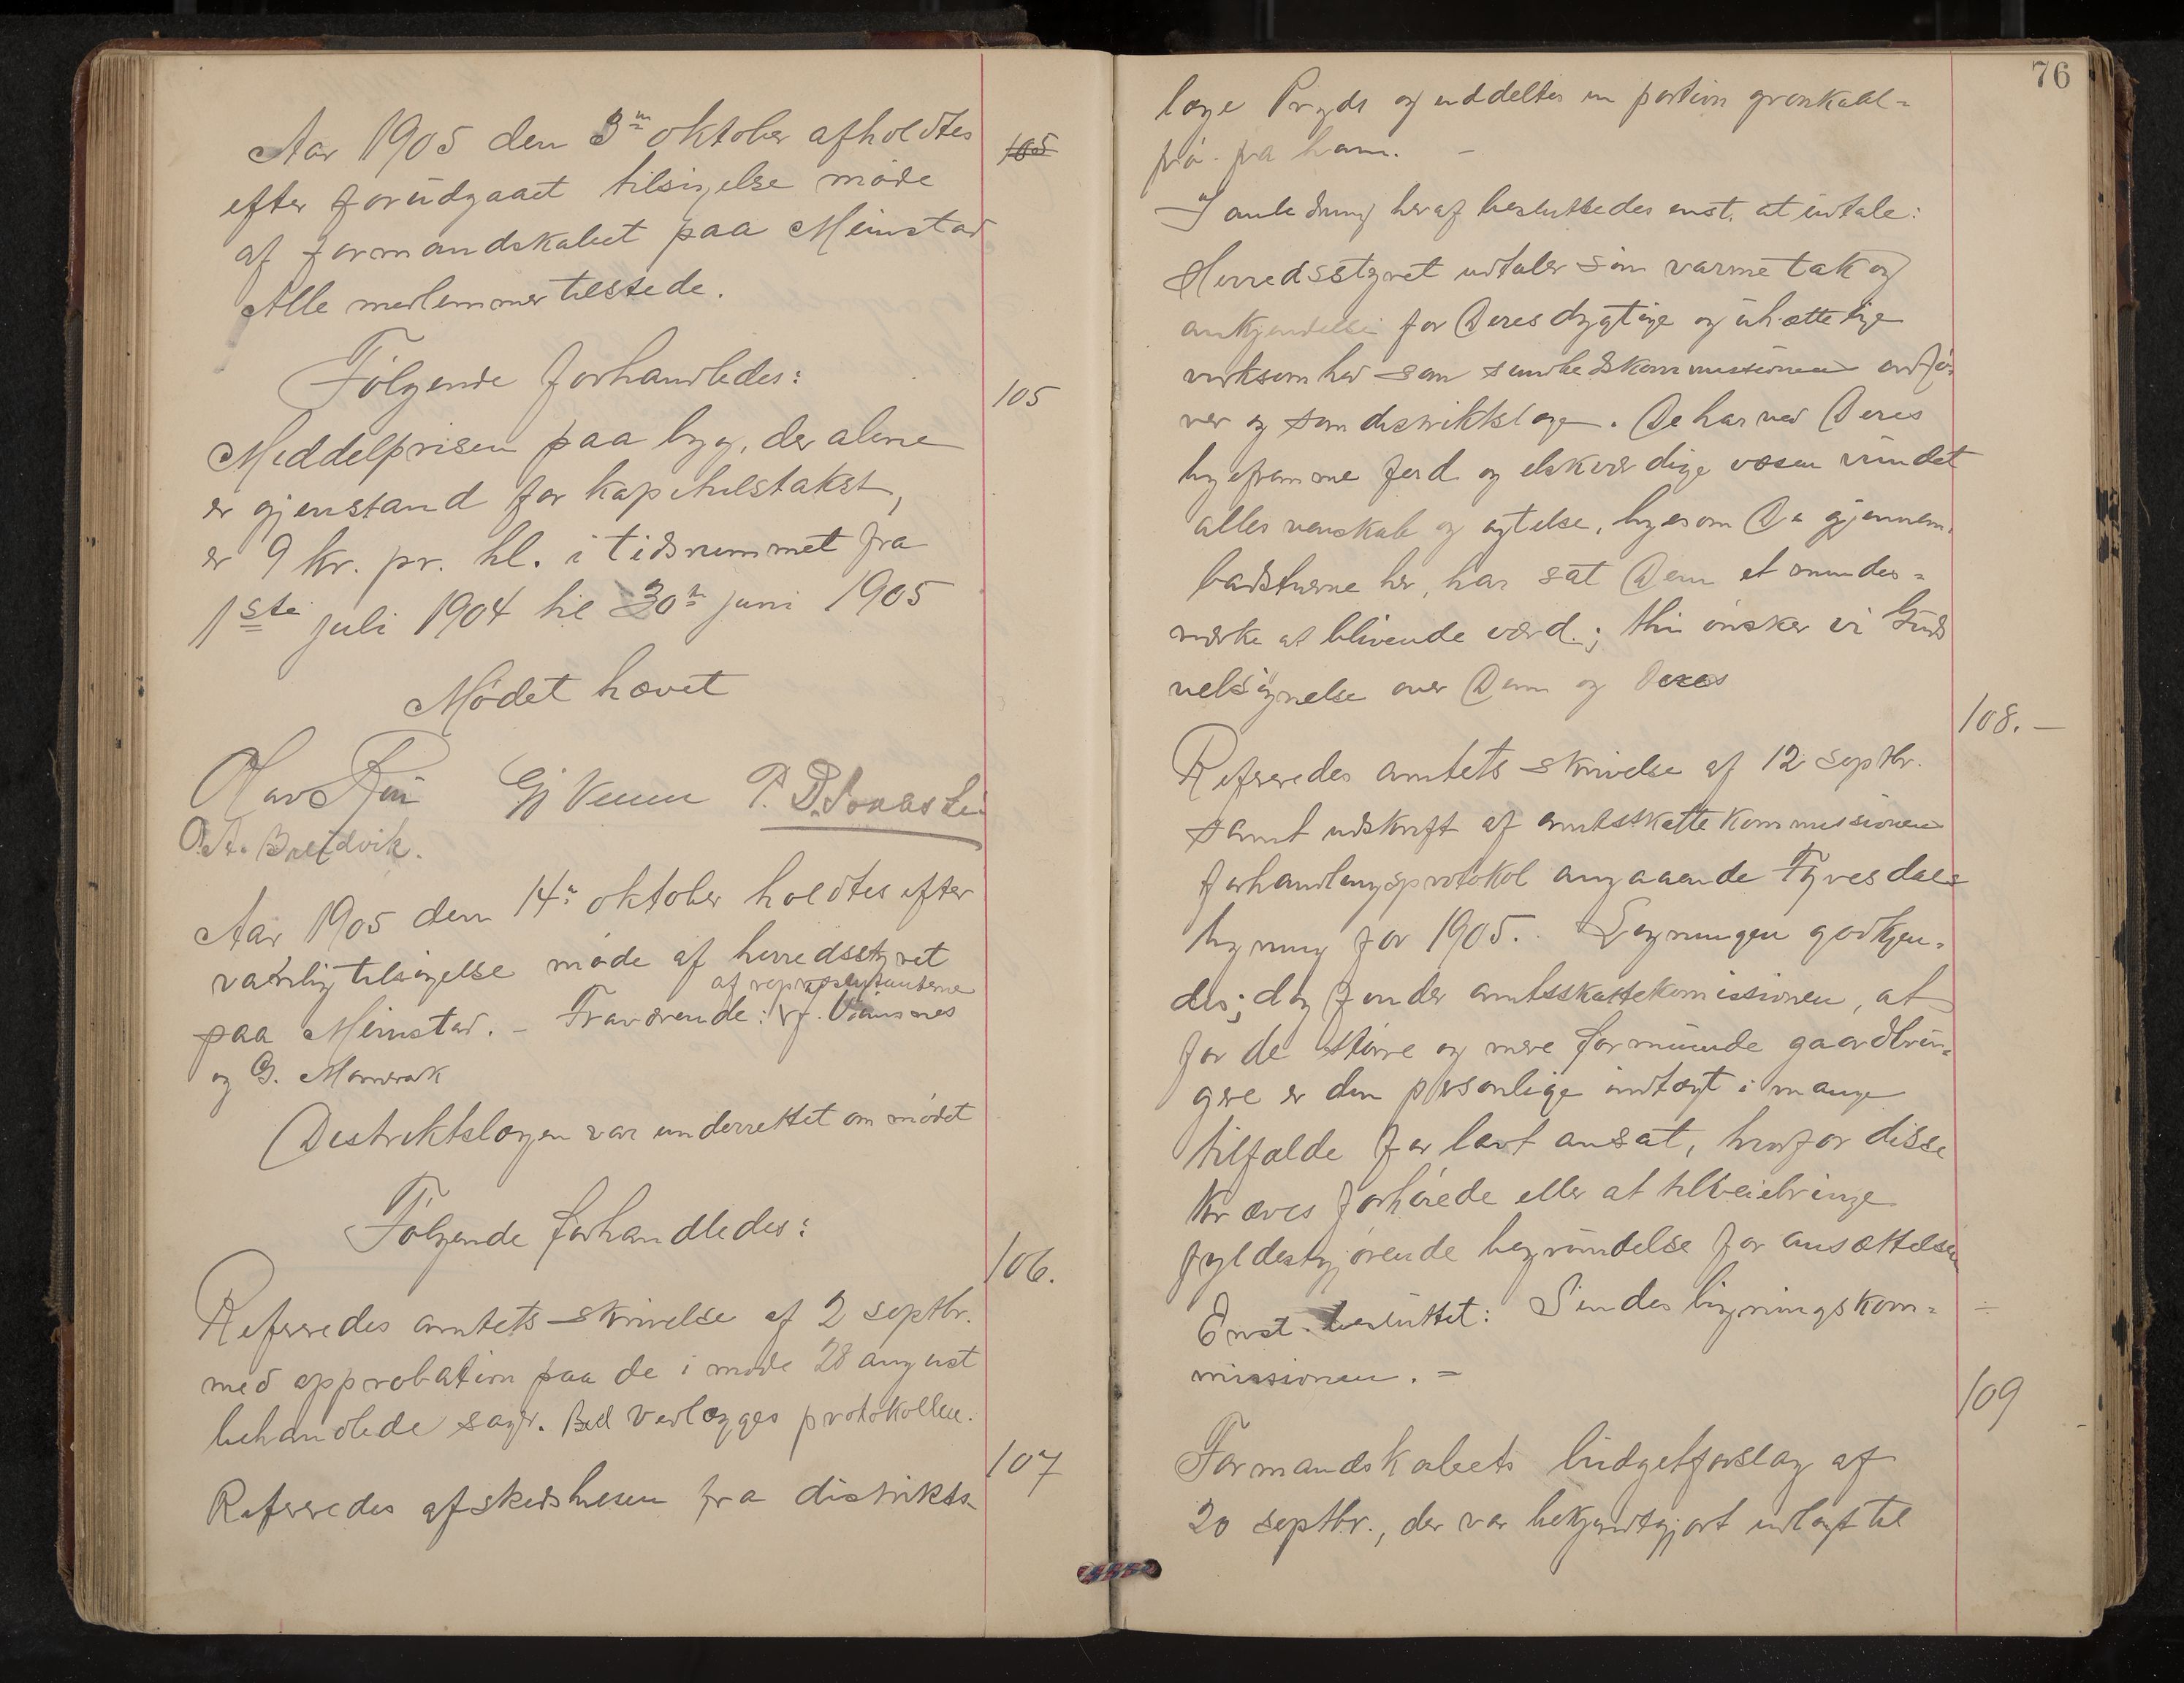 Aar 1905 den 3die oktober afholdtes
105
efter forudgaaet tilsigelse møde
af formandskabet paa Meinstad
Alle medlemmer tilstede.
Følgende forhandledes:
105
Middelprisen paa byg, der alene
er gjenstand for kapitelstakst,
er 9 kr. pr. hl. i tidsrummet fra
1ste juli 1904 til 30te juni 1905
Mødet hævet
Olav P. P. Jonas
O.A. Breidvik.
Aar 1905 den 14de oktober holdtes efter
vanlig tilsigelse møde af herredsstyret
af repræsentanterne
paa Meinstad. – Fraværende:
og G. Momrak
Distriktslægen var underrettet om mødet
Følgende forhandledes:
106.
Refereredes amtets skrivelse af 2 septbr.
med approbation paa de i møde 28 august
behandlede sager. Vedlægges protokollen.
107
Refereredes afskedshilsen fra distrikts-
76
læge Pryds og uddeltes en portion grønkaal-
frø fra ham. –
I anledning heraf besluttedes enst. at udtale:
Herredsstyret udtaler sin varme tak og
ankjendelse for Deres dygtige og utrættelige
virksomhed som sundhedskommissionens ordfø-
rer og som distriktslæge. De har ved Deres
ligeframme ferd og elskværdige væsen vundet
alles venskab og agtelse, ligesom De gjennem
badstuerne her, har sat Dem et mindes-
merke af blivende værd; thi ønsker vi Guds
velsignelse over Dem og Deres
108. –
Refereredes amtets skrivelse af 12 septbr.
samt udskrift af amtsskattekommissionens
forhandlingsprotokol angaaende Fyresdals
ligning for 1905. Ligningen godkjen-
des; dog finder amtsskattekomissionen, at
for de større og mere formuende gaardbru-
gere er den personlige indtægt i mange
tilfælde for lavt ansat, hvorfor disse
kræves forhøiede eller at tilveiebringe
fyldestgjørende begrundelse for ansættelsen
Enst. besluttet: Sendes ligningskom-
missionen. –
109
Formandskabets budgetforslag af
20 septbr., der var bekjendtgjort udlagt til